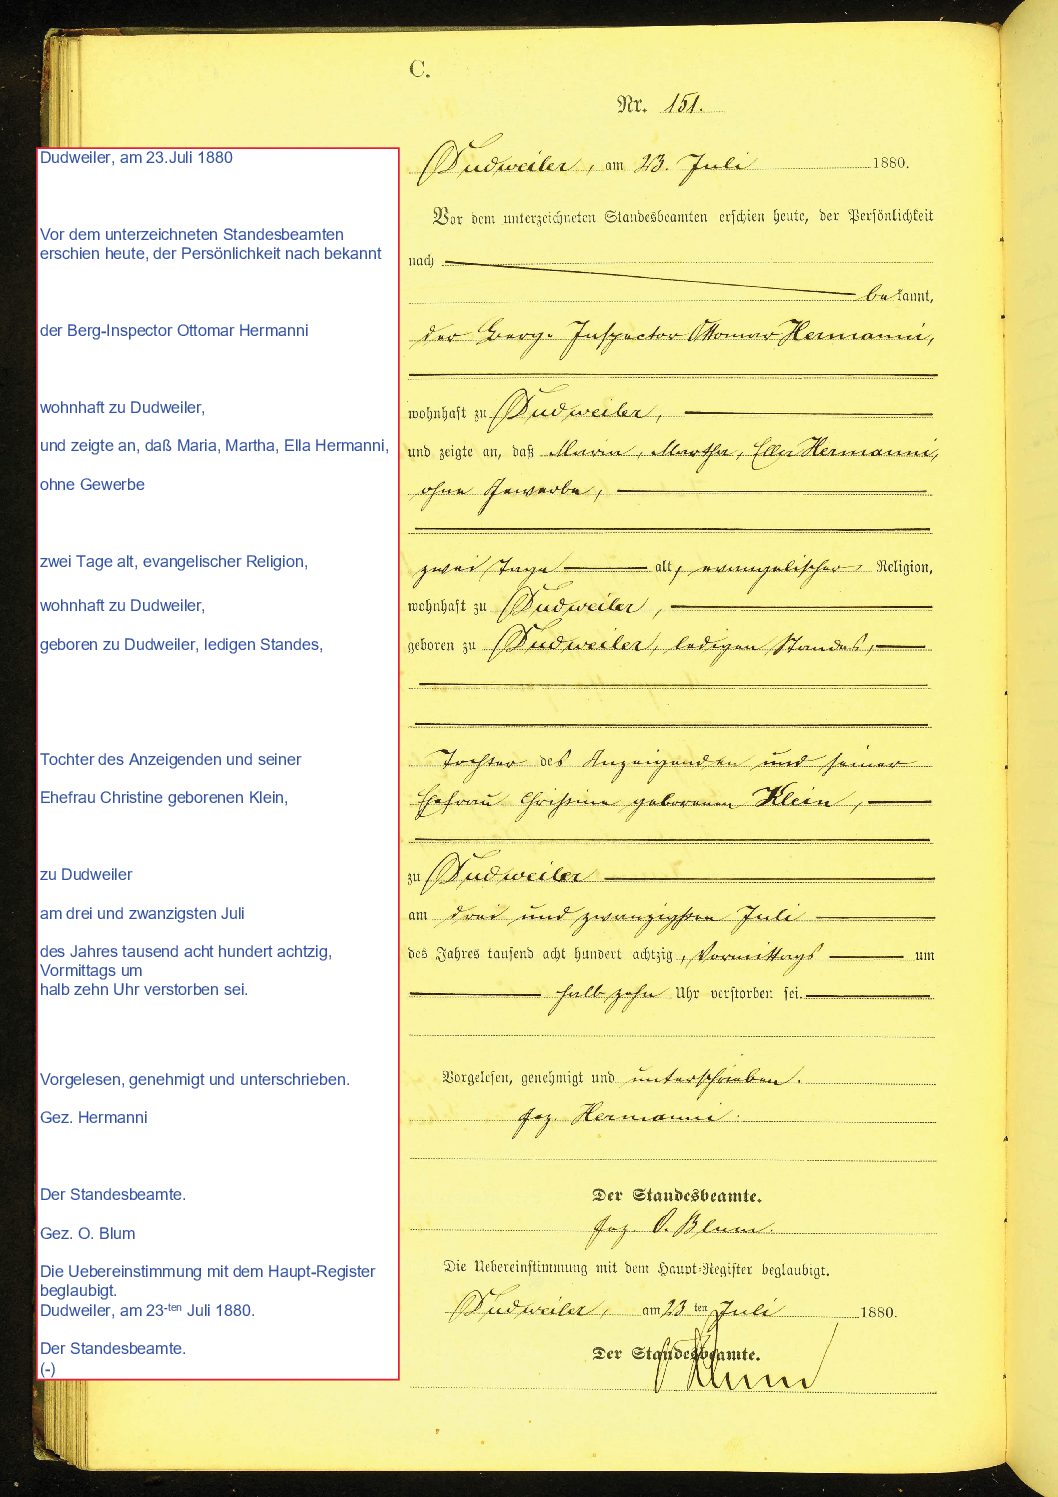 C.
Nr. 151.
Dudweiler, am 23.Juli 1880
Vor dem unterzeichneten Standesbeamten
erschien heute, der Persönlichkeit nach bekannt
der Berg-Inspector Ottomar Hermanni
wohnhaft zu Dudweiler,
und zeigte an, daß Maria, Martha, Ella Hermanni,
ohne Gewerbe
zwei Tage alt, evangelischer Religion,
wohnhaft zu Dudweiler,
geboren zu Dudweiler, ledigen Standes,
Tochter des Anzeigenden und seiner
Ehefrau Christine geborenen Klein,
zu Dudweiler
am drei und zwanzigsten Juli
des Jahres tausend acht hundert achtzig,
Vormittags um
halb zehn Uhr verstorben sei.
Vorgelesen, genehmigt und unterschrieben.
Gez. Hermanni
Der Standesbeamte.
Gez. O. Blum
Die Uebereinstimmung mit dem Haupt-Register
beglaubigt.
Dudweiler, am 23-ten Juli 1880.
Der Standesbeamte.
(-)
Dudweiler, am 23. Juli 1880.
Vor dem unterzeichneten Standesbeamten erschien heute, der Persönlichkeit
nach
bekannt,
der Berg-Inspector Ottomar Hermanni,
wohnhaft zu Dudweiler,
und zeigte an, daß Maria, Martha, Ella Hermanni,
ohne Gewerbe,
zwei Tage alt, evangelischer Religion,
wohnhaft zu Dudweiler,
geboren zu Dudweiler, ledigen Standes,
Tochter des Anzeigenden und seiner
Ehefrau Christine geborenen Klein,
zu Dudweiler
am drei und zwanzigsten Juli
des Jahres tausend acht hundert achtzig, Vormittags um
halb zehn Uhr verstorben sei.
Vorgelesen, genehmigt und unterschrieben.
gez. Hermanni.
Der Standesbeamte.
gez. O. Blum.
Die Uebereinstimmung mit dem Haupt-Register beglaubigt.
Dudweiler, am 23 ten Juli 1880.
Der Standesbeamte.
O Blum